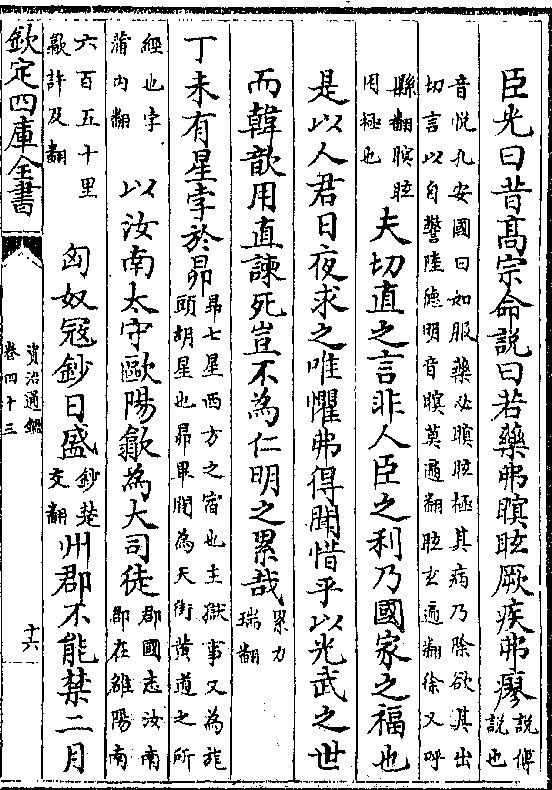 臣光曰昔髙宗命說曰若藥弗瞑眩厥疾弗瘳說傅說也
音悦孔安國曰如服藥必瞑眩極其病乃除欲其出切言以自警陸德明音瞑莫遍翻眩玄遍翻徐又呼
縣翻瞑眩困極也夫切直之言非人臣之利乃國家之福也
是以人君日夜求之唯懼弗得聞惜乎以光武之世
而韓歆用直諫死豈不為仁明之累哉累力瑞翻
丁未有星孛於昴昴七星西方之宿也主獄事又為旄頭胡星也昴畢間為天街黄道之所
經也孛蒲内翻以汝南太守歐陽歙為大司徒郡國志汝南郡在雒陽南
六百五十里歙許及翻匈奴寇鈔日盛鈔楚交翻州郡不能禁二月
欽定四庫全書
資治通鑑
卷四十三
十六